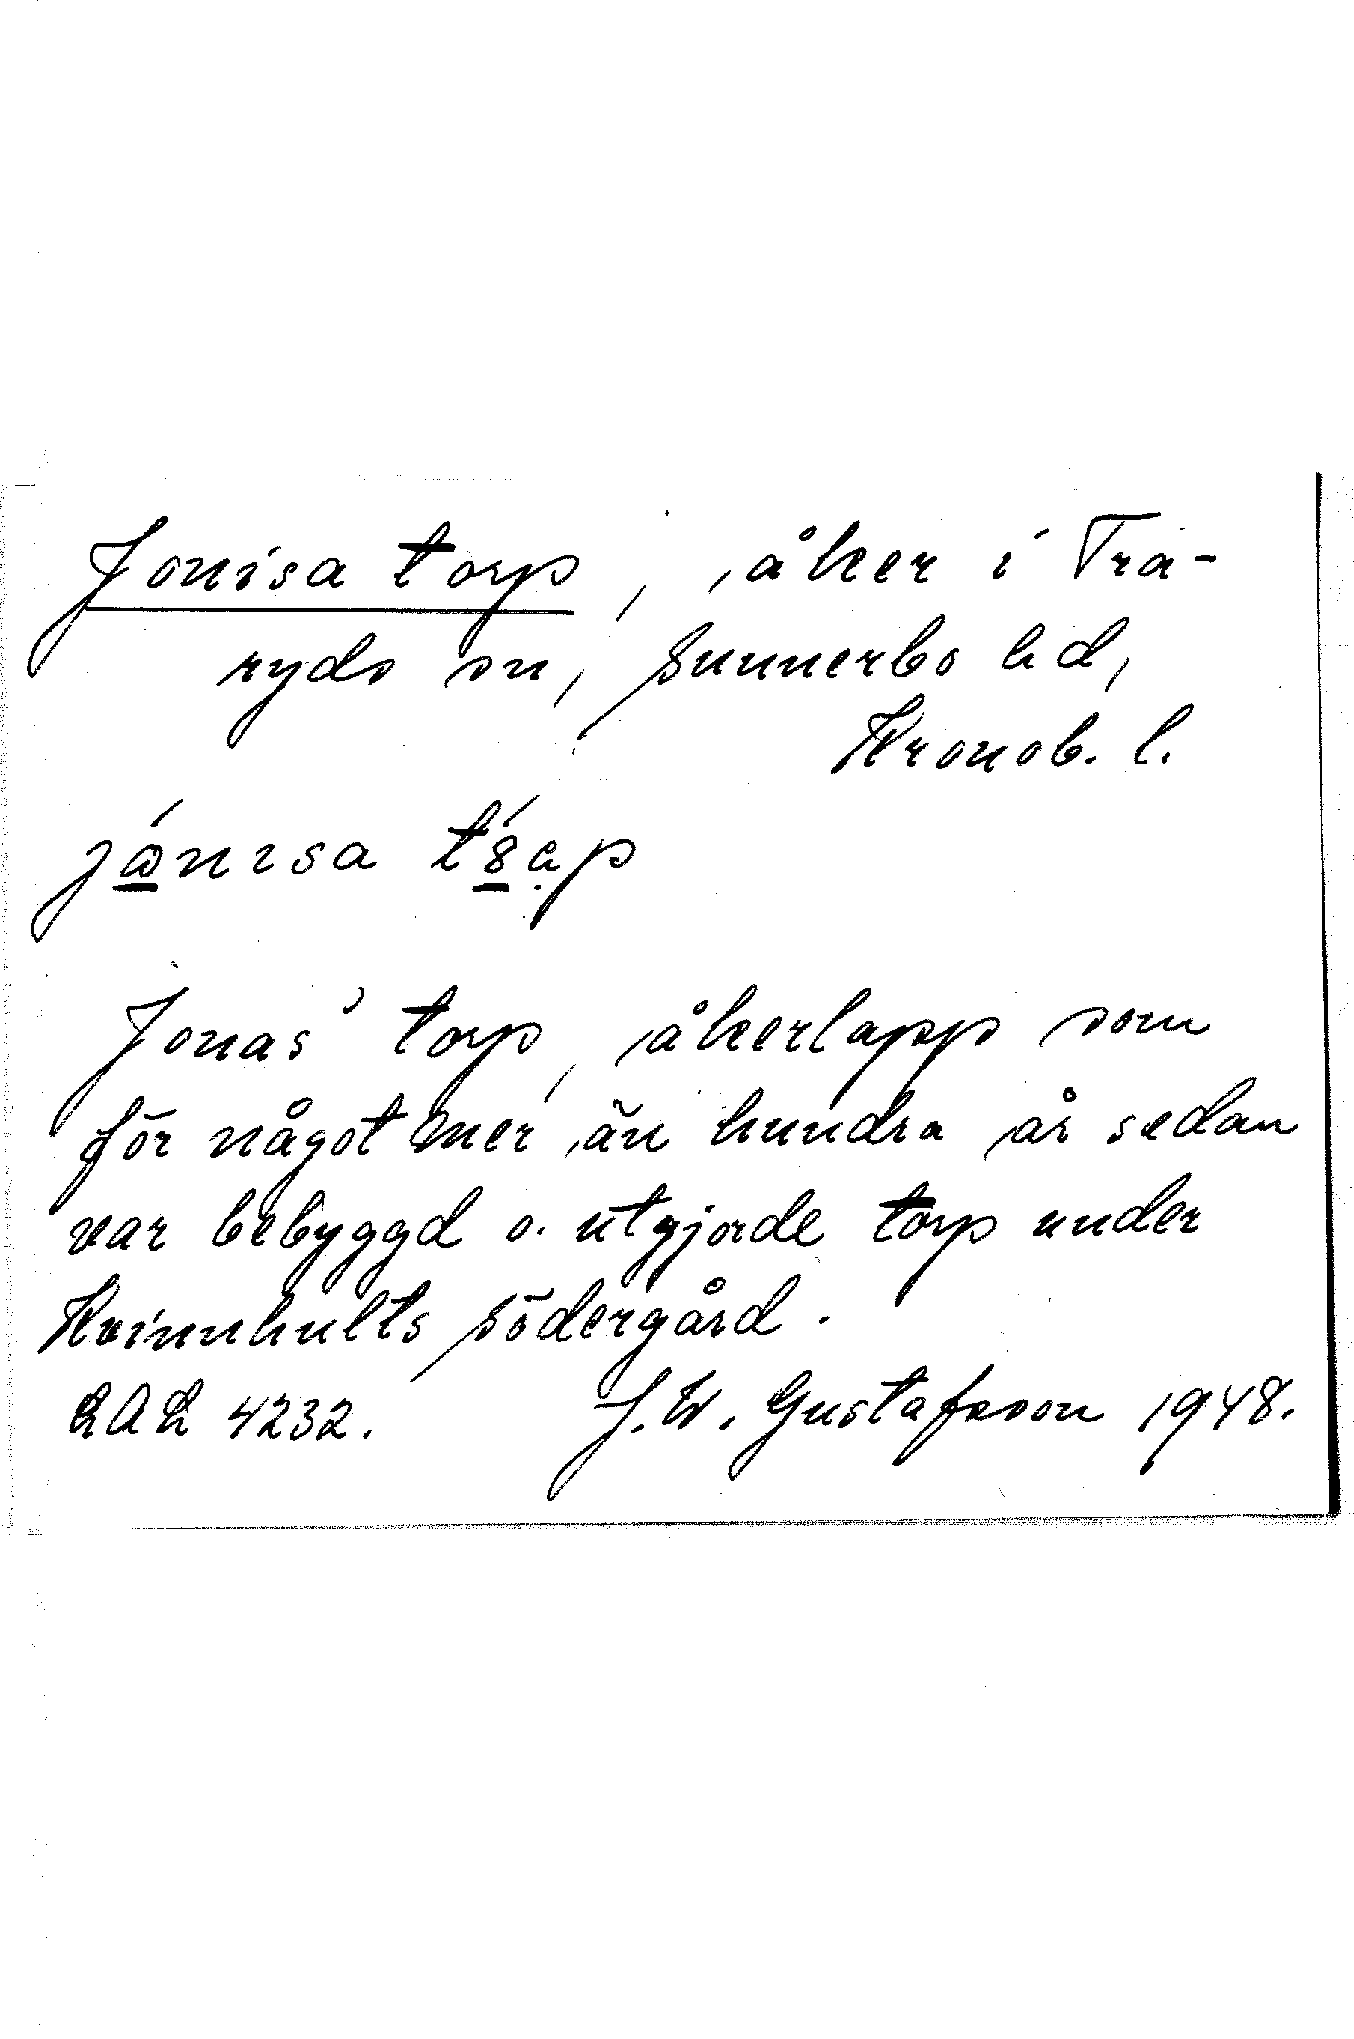 Jonisa torp, åker i Tra-
ryds sn, Sunnerbo hd,
Kronob. l.
Jonas' torp, åkerlapp som
för något mer än hundra år sedan
var bebyggd o. utgjorde torp under
Kvinnhults södergård.
LAL 4232. J. W. Gustafsson 1948.